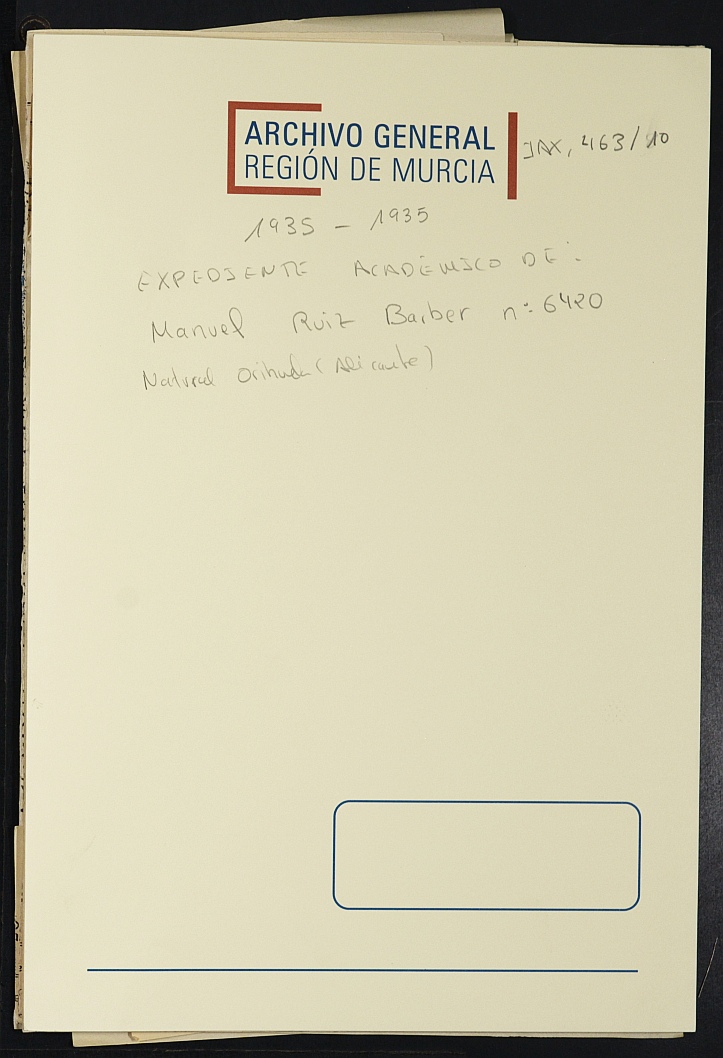 ARCHIVO GENERAL
REGIÓN DE MURCIA
JAX, 463/10
1935 - 1935
EXPEDIENTE ACADÉMICO DE:
Manuel Ruiz Barber nº 6420
Natural Orihuela (Alicante)